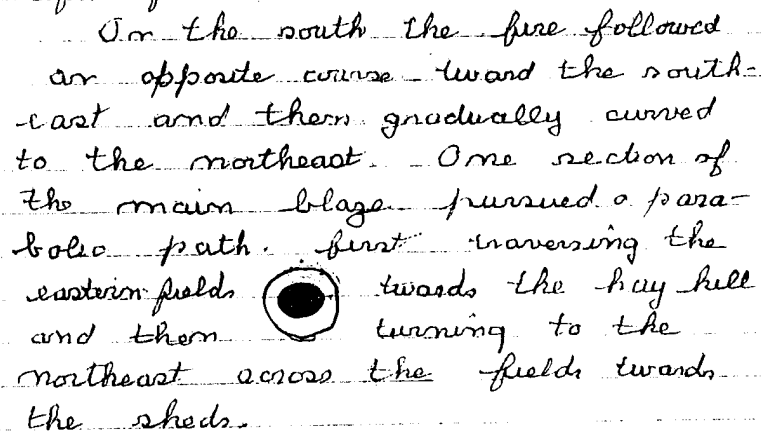 On the south the fire followed
an opposite course toward the south-
east and then gradually curved
to the northeast. One section of
the main blaze pursued a para-
bolic path. first traversing the
eastern fields twards the hay hill
and then turning to the
northeast across the fields twards
the sheds.